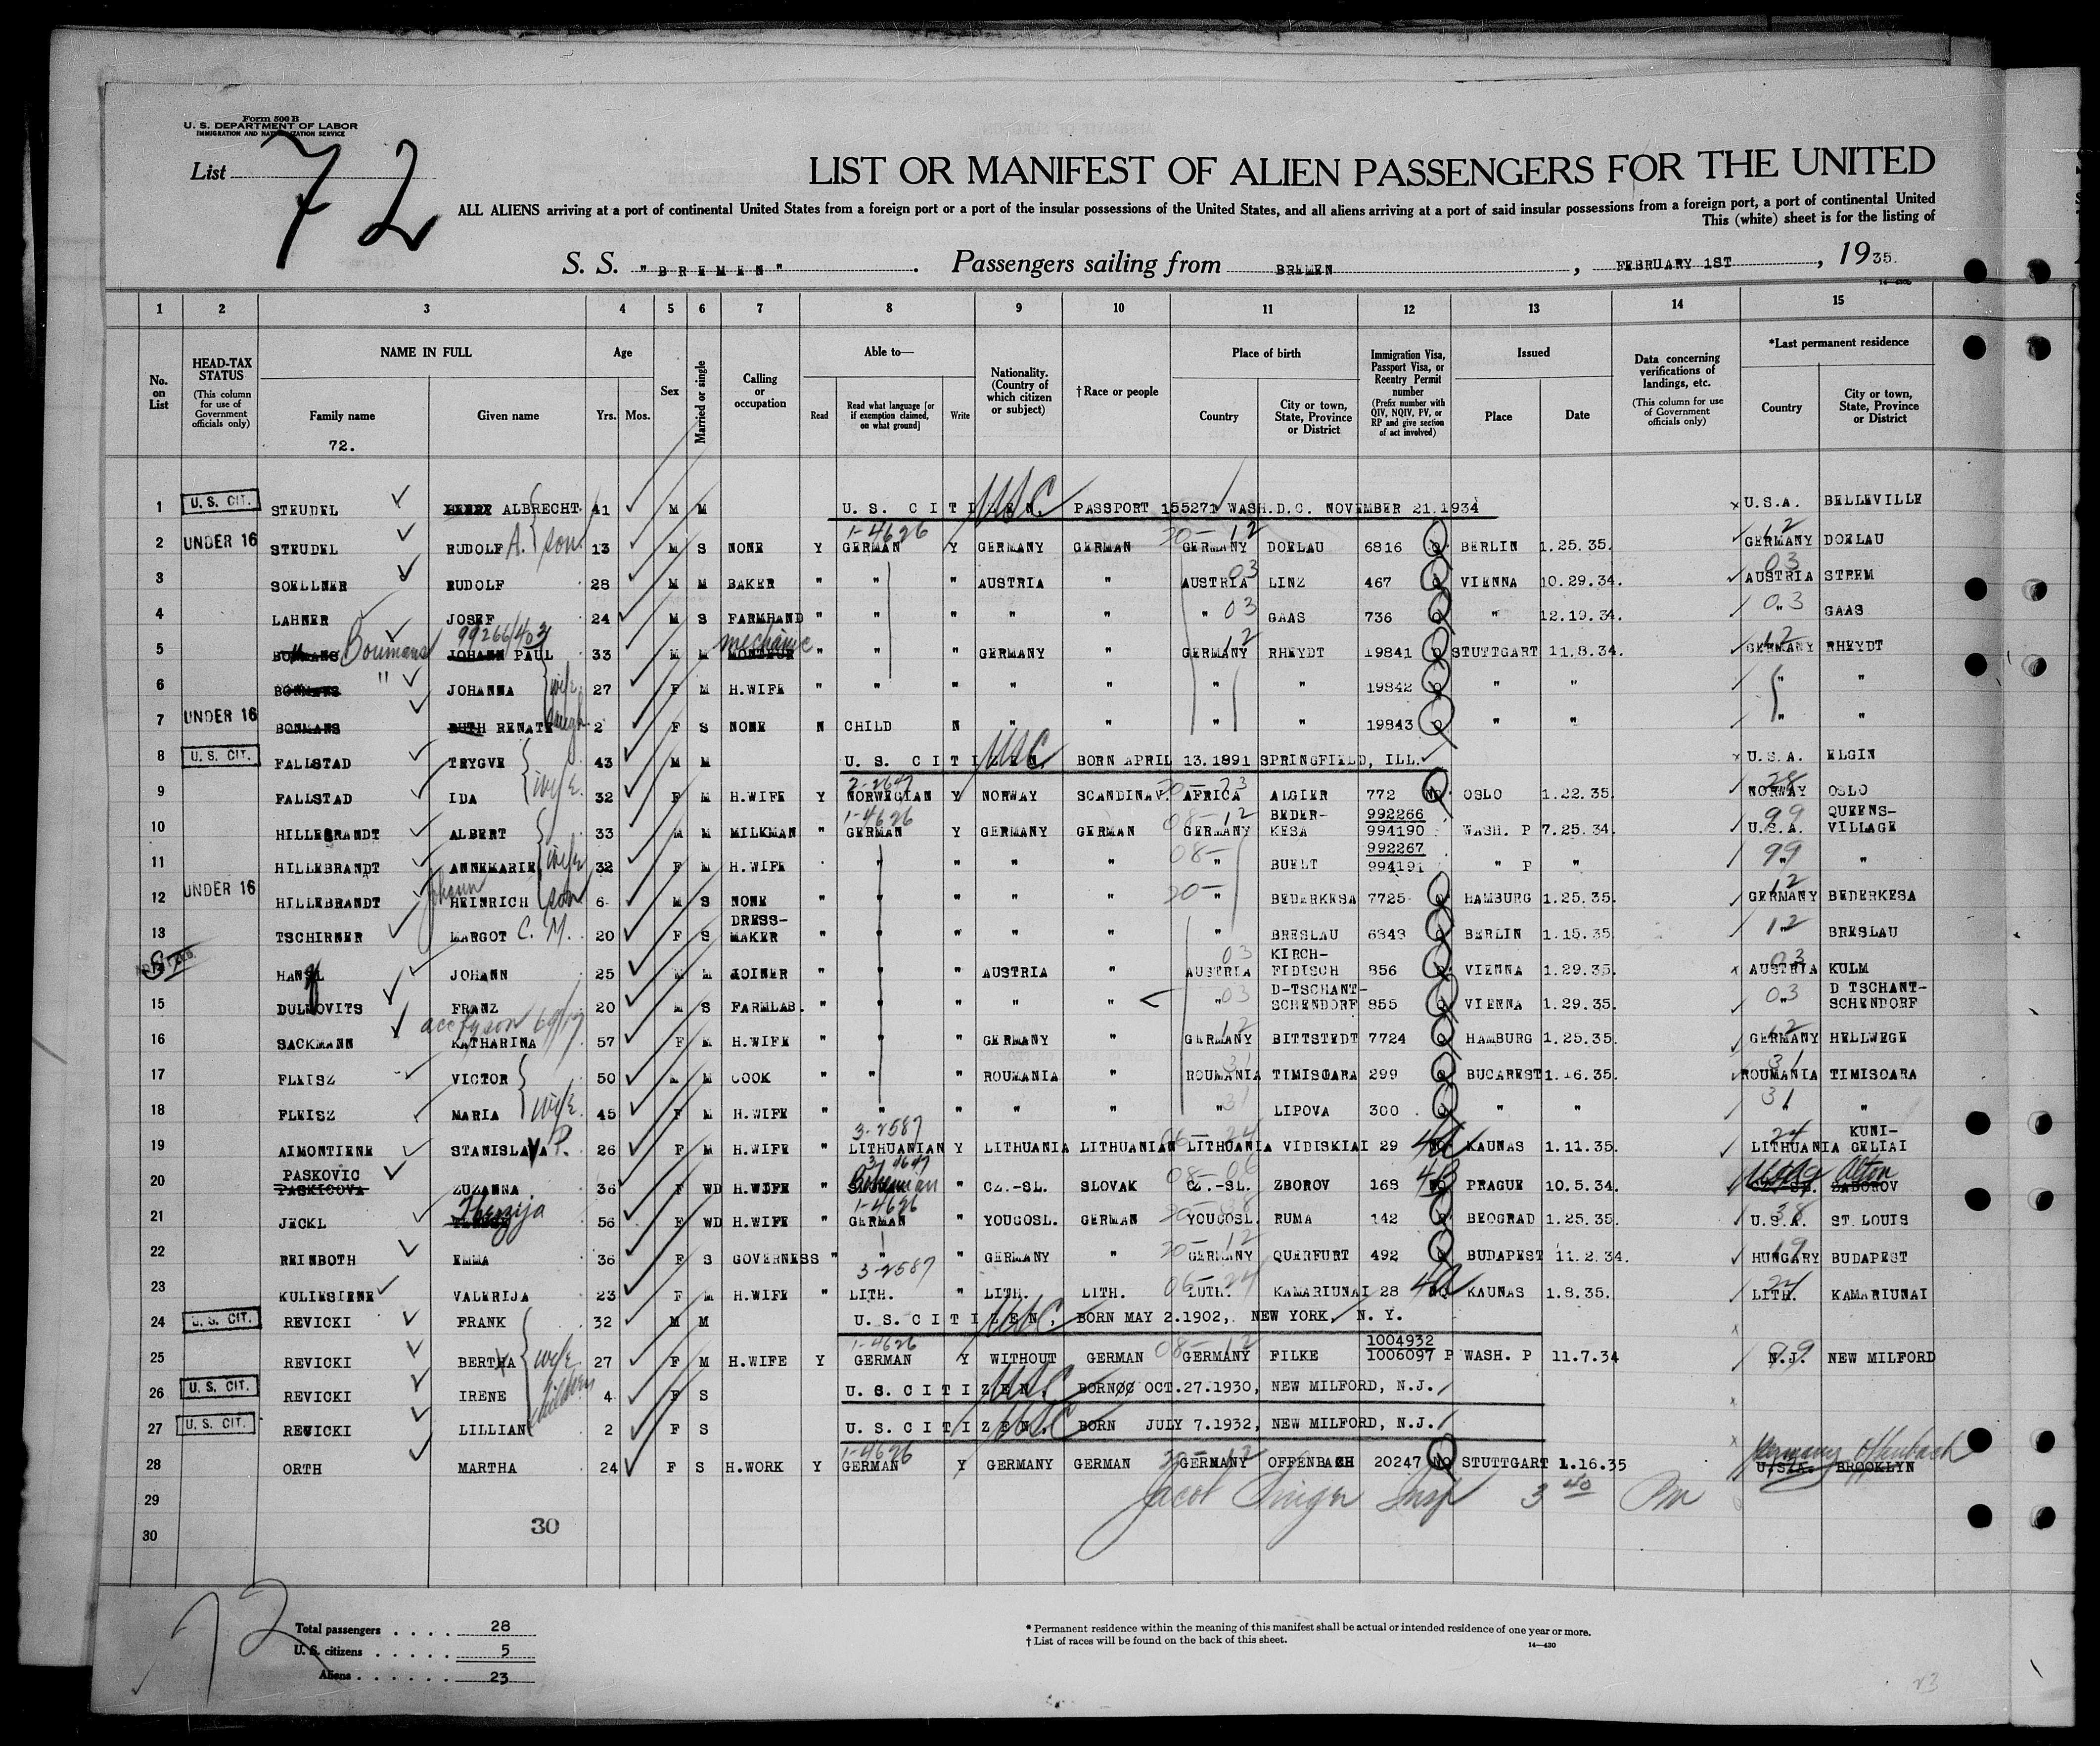 Form 500 B
U. S. DEPARTMENT OF LABOR
IMMIGRATION AND NATURALIZATION SERVICE
List 72
LIST OR MANIFEST OF ALIEN PASSENGERS FOR THE UNITED
ALL ALIENS arriving at a port of continental United States from a foreign port or a port of the insular possessions of the United States, and all aliens arriving at a port of said insular possessions from a foreign port, a port of continental United
This (white) sheet is for the listing of
S. S. "BREMEN". Passengers sailing from BREMEN, FEBRUARY 1ST, 1935.
1 2 3 4 5 6 7 8 9 10 11 12 13 14 15
No. on List
HEAD-TAX STATUS (This column for use of Government officials only)
NAME IN FULL Family name Given name
72.
Age Yrs. Mos.
Sex
Married or single
Calling or occupation
Able to— Read Read what language [or if exemption claimed, on what ground] Write
Nationality. (Country of which citizen or subject)
†Race or people
Place of birth Country City or town, State, Province or District
Immigration Visa, Passport Visa, or Reentry Permit number (Prefix number with QIV, NQIV, PV, or RP and give section of act involved)
Issued Place Date
Data concerning verifications of landings, etc. (This column for use of Government officials only)
*Last permanent residence Country City or town, State, Province or District
1 U. S. CIT. STEUDEL HENRY ALBRECHT 41 M M U. S. CITIZEN. USC PASSPORT 155271 WASH.D.C. NOVEMBER 21.1934 x U.S.A. BELLEVILLE
1-4626 20-12 12
2 UNDER 16 STEUDEL RUDOLF A. son 13 M S NONE Y GERMAN Y GERMANY GERMAN GERMANY DOELAU 6816 Q BERLIN 1.25.35. GERMANY DOELAU
03 03
3 SOELLNER RUDOLF 28 M M BAKER " " " AUSTRIA " AUSTRIA LINZ 467 Q VIENNA 10.29.34. AUSTRIA STREM
4 LAHNER JOSEF 24 M S FARMHAND " " " " " " 03 GAAS 736 Q " 12.19.34. 03 " GAAS
99266/403 mechanic 12 12
5 BONMANS Boumans JOHANN PAUL 33 M M MONTEUR " " " GERMANY " GERMANY RHEYDT 19841 Q STUTTGART 11.8.34. GERMANY RHEYDT
6 BONMANS " JOHANNA wife 27 F M H.WIFE " " " " " " " 19842 Q " " " "
7 UNDER 16 BONMANS RUTH RENATE daugh. 2 F S NONE N CHILD N " " " " 19843 Q " " " "
8 U. S. CIT. FALLSTAD TRYGVE 43 M M U. S. CITIZEN. USC BORN APRIL 13.1891 SPRINGFIELD, ILL. x U.S.A. ELGIN
2-2647 23 28
9 FALLSTAD IDA wife 32 F M H.WIFE Y NORWEGIAN Y NORWAY SCANDINAV. AFRICA ALGIER 772 NQ OSLO 1.22.35. NORWAY OSLO
1-4626 08-12 BEDER- 992266 99 QUEENS-
10 HILLEBRANDT ALBERT 33 M M MILKMAN " GERMAN Y GERMANY GERMAN GERMANY KESA 994190 WASH. P 7.25.34. U.S.A. VILLAGE
08- 992267 99
11 HILLEBRANDT ANNEMARIE wife 32 F M H.WIFE " " " " " BUELT 994191 " P " " "
Johann 20- 12
12 UNDER 16 HILLEBRANDT HEINRICH son 6 M S NONE " " " " " " BEDERKESA 7725 Q HAMBURG 1.25.35. GERMANY BEDERKESA
DRESS- 12
13 TSCHIRNER MARGOT C. M. 20 F S MAKER " " " " " " BRESLAU 6343 Q BERLIN 1.15.35. " BRESLAU
03 KIRCH- 03
HANSL JOHANN 25 M M JOINER " " " AUSTRIA " AUSTRIA FIDISCH 856 Q VIENNA 1.29.35. x AUSTRIA KULM
D-TSCHANT- D TSCHANT-
15 DULMOVITS FRANZ 20 M S FARMLAB. " " " " " " 03 SCHENDORF 855 Q VIENNA 1.29.35. 03 " SCHENDORF
12 12
16 SACKMANN KATHARINA 57 F M H.WIFE " " " GERMANY " GERMANY BITTSTEDT 7724 Q HAMBURG 1.25.35. GERMANY HELLWEGE
31 31
17 FLEISZ VICTOR 50 M M COOK " " " ROUMANIA " ROUMANIA TIMISOARA 299 Q BUCAREST 1.16.35. ROUMANIA TIMISOARA
31 31
18 FLEISZ MARIA wife 45 F M H.WIFE " " " " " " LIPOVA 300 Q " " " "
3-2587 06-24 24 KUNI-
19 AIMONTIENE STANISLAVA P. 26 F M H.WIFE " LITHUANIAN Y LITHUANIA LITHUANIAN LITHUANIA VIDISKIAI 29 4a KAUNAS 1.11.35. LITHUANIA GELIAI
PASKOVIC 08-06
20 PASKICOVA ZUZANNA 36 F WD H.WIFE " Bohemian " CZ.-SL. SLOVAK CZ.-SL. ZBOROV 168 4B PRAGUE 10.5.34. CZ.-SL. ZABOROV
Therezija 1-4626 38
21 JECKL 56 F WD H.WIFE " GERMAN " YOUGOSL. GERMAN YOUGOSL. RUMA 142 Q BEOGRAD 1.25.35. U.S.A. ST. LOUIS
20-12 19
22 REINBOTH EMMA 36 F S GOVERNESS " " " GERMANY " GERMANY QUERFURT 492 Q BUDAPEST 11.2.34. HUNGARY BUDAPEST
3-2587 06-24 24
23 KULIESIENE VALERIJA 23 F M H.WIFE " LITH. " LITH. LITH. LITH. KAMARIUNAI 28 4a KAUNAS 1.8.35. LITH. KAMARIUNAI
24 U. S. CIT. REVICKI FRANK 32 M M U. S. CITIZEN, USC BORN MAY 2.1902, NEW YORK, N. Y. x
1-4626 08-12 1004932 99
25 REVICKI BERTHA wife 27 F M H.WIFE Y GERMAN Y WITHOUT GERMAN GERMANY FILKE 1006097 P WASH. P 11.7.34 N.J. NEW MILFORD
26 U. S. CIT. REVICKI IRENE children 4 F S U. S. CITIZEN. USC BORN OCT.27.1930, NEW MILFORD, N.J. x
27 U. S. CIT. REVICKI LILLIAN 2 F S U. S. CITIZEN. USC BORN JULY 7.1932, NEW MILFORD, N.J. x
1-4626 20-12 Germany Offenbach
28 ORTH MARTHA 24 F S H.WORK Y GERMAN Y GERMANY GERMAN GERMANY OFFENBACH 20247 NQ STUTTGART 1.16.35 U.S.A. BROOKLYN
29 Jacob Singer Insp 3 40 Pm
30 30
72
Total passengers . . . . 28
U. S. citizens . . . . . 5
Aliens . . . . . . 23
* Permanent residence within the meaning of this manifest shall be actual or intended residence of one year or more.
† List of races will be found on the back of this sheet.
14—430
23